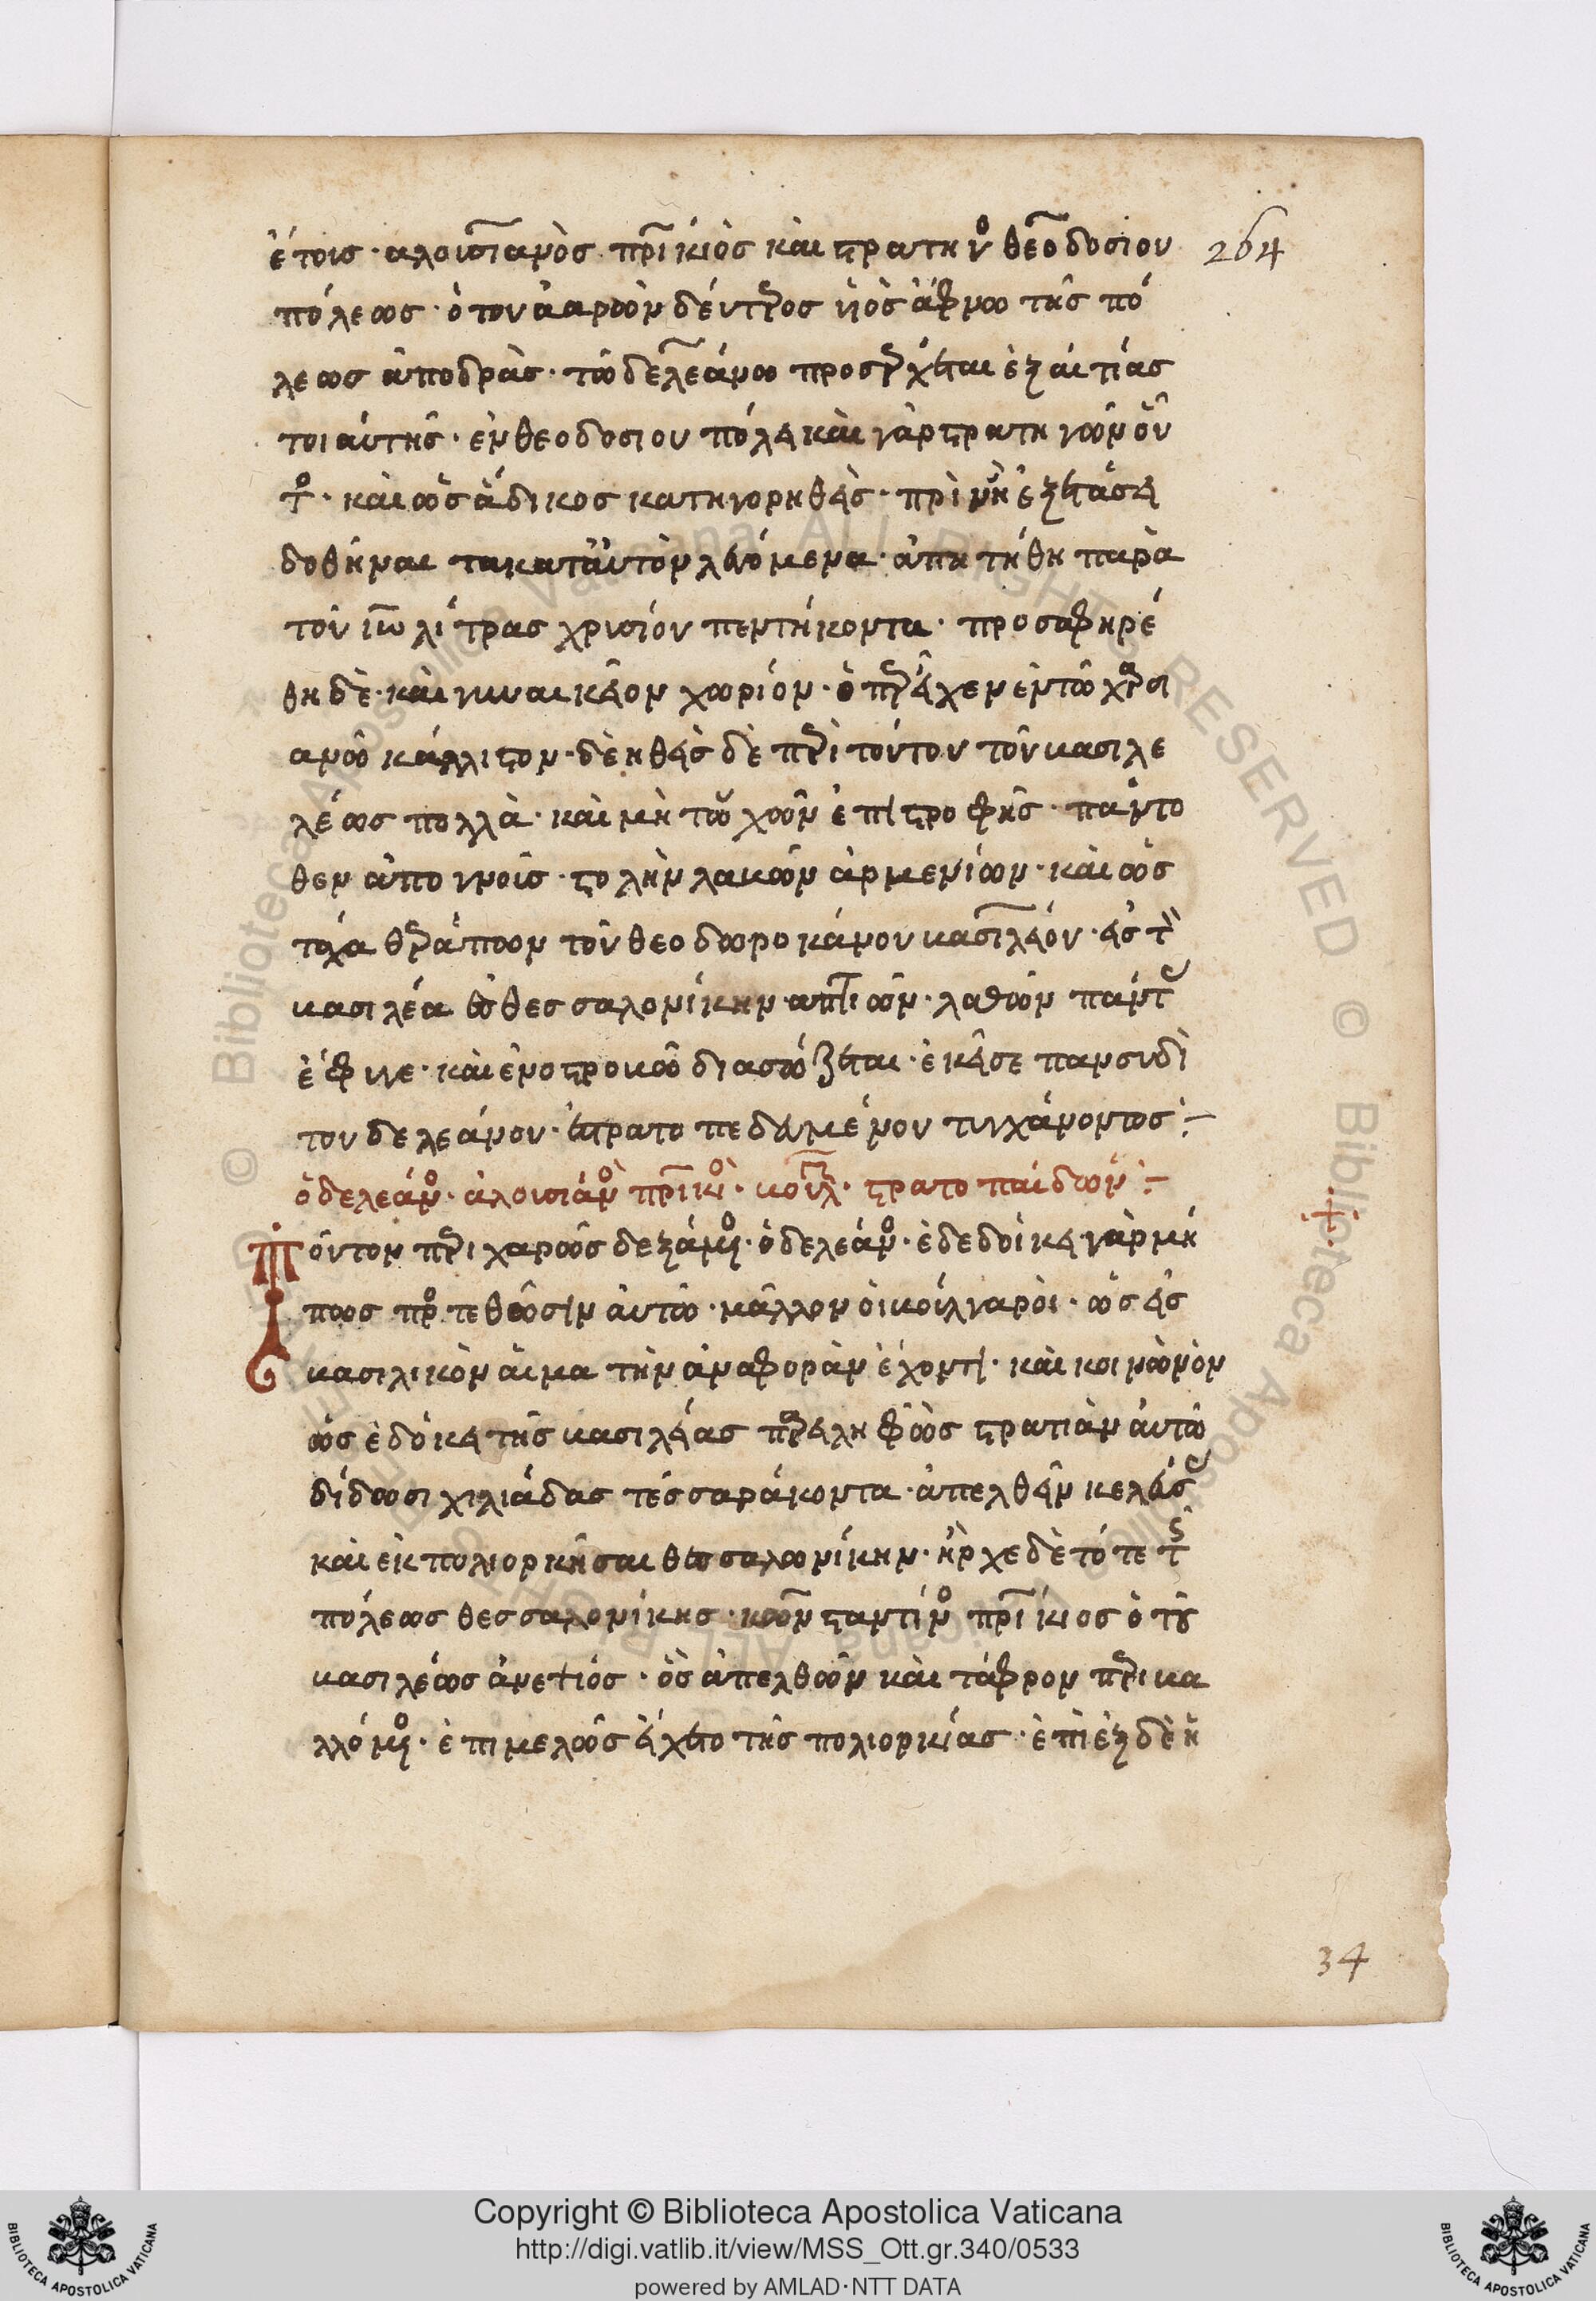 ἔτους · ἀλουσιανὸς πρίκιὸς καὶ στρατηγ θεοδοσίου 264
πόλεως · ὁ τοῦ ἀαρὼν δεύτρος ὑιὸς ἄφνω τῆς πό
λεως ἀποδρὰς · τῶ δελεάνω προσέρχεται ἐξ αἰτίας
τοιαύτης · ἐν θεοδοσίου πόλει καὶ γὰρ στρατηγῶν οὗ
τος · καὶ ὡς ἄδικος κατηγορηθεὶς · πρὶν ἢ ἐξετάσει
δοθῆναι τὰ κατ' αὐτὸν λεγόμενα · ἀπητήθη παρὰ
τοῦ ἰω λίτρας χρυσίου πεντήκοντα · προσαφηρέ
θη δὲ · καὶ γυναικεῖον χωρίον · ὁ περ εἶχεν ἐν τῶ χαρσι
ανῶ κάλλιστον · δεηθεὶς δὲ περὶ τούτου τοῦ βασιλε
λέως πολλὰ · καὶ μὴ τυχὼν ἐπιστροφῆς · πάντο
θεν ἀπογνοὺς · στολὴν λαβὼν ἀρμενίων · καὶ ὡς
τάχα θεράπων τοῦ θεοδωροκάνου βασιλείου · εἰς τ
βασιλέα ἐς θεσσαλονίκην ἀπιὼν · λαθὼν πάντ
ἔφυγε · καὶ ἐν ὀστροβῶ διασώζεται · ἐκεῖσε πανσυδὶ
τοῦ δελεάνου · ἐστρατοπεδευμένου τυγχάνοντος :–
ὁ δελεάν · ἀλουσιάν πρίκι · βουλ · στρατοπαίδων :–
Τοῦτον περιχαρῶς δεξάμεν · ὁ δελεάν · ἐδεδοίκει γὰρ μή
πως προτεθῶσιν αὐτῶ · μᾶλλον οἱ βούλγαροι · ὡς εἰς
βασιλικὸν αἷμα τὴν ἀναφορὰν ἔχοντι · καὶ κοινωνὸν
ὡς ἐδόκει τῆς βασιλείας παρειληφὼς στρατιὰν αὐτῶ
δίδωσι χιλιάδας τέσσαράκοντα · ἀπελθεῖν κελεύσ
καὶ ἐκπολιορκῆσαι θεσσαλωνίκην · ἦρχε δὲ τότε τ
πόλεως θεσσαλονίκης · κωνσταντίν πρίκιος ὁ τοῦ
βασιλέως ἀνετιός · ὃς ἀπελθὼν καὶ τάφρον περιβα
λλόμεν · ἐπιμελῶς εἴχετο τῆς πολιορκίας · ἐπὶ ἓξ δὲ ἡ
34
Copyright © Biblioteca Apostolica Vaticana
http://digi.vatlib.it/view/MSS_Ott.gr.340/0533
powered by AMLAD·NTT DATA